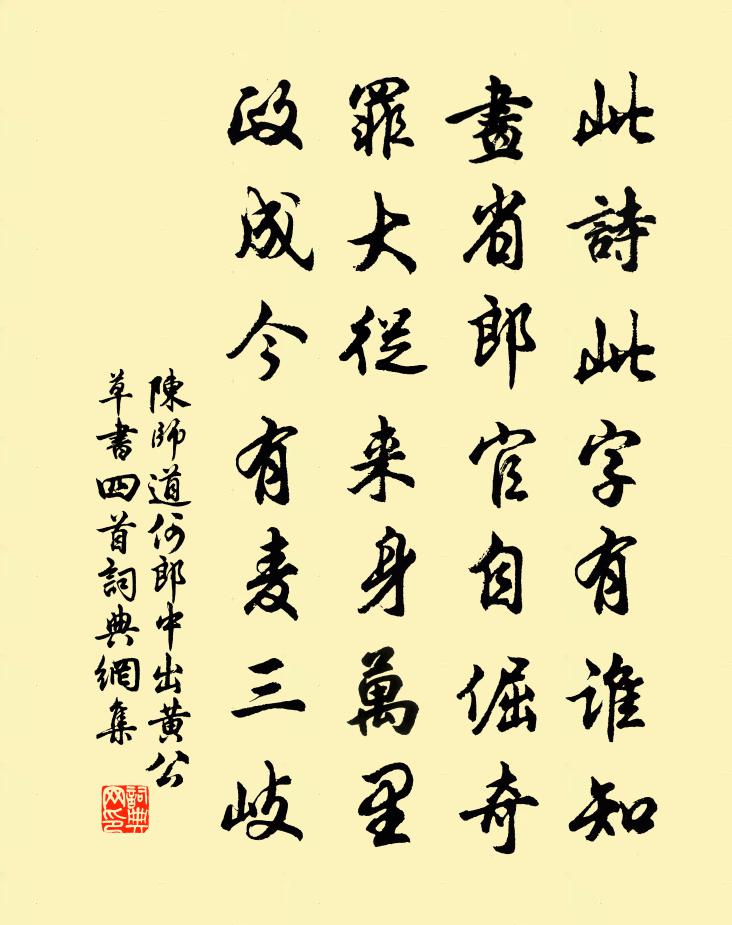 此詩此字有誰知
畫省郎官自倔奇
罪大從来身萬里
政成今有麦三岐
陳師道何郎中出黄公
草書四首詞典網集
詞典
网印